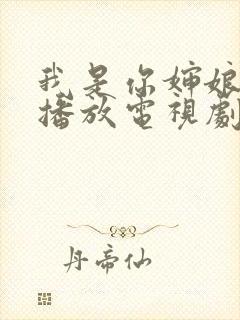 我是你婶娘
播放電視劇
丹帝仙